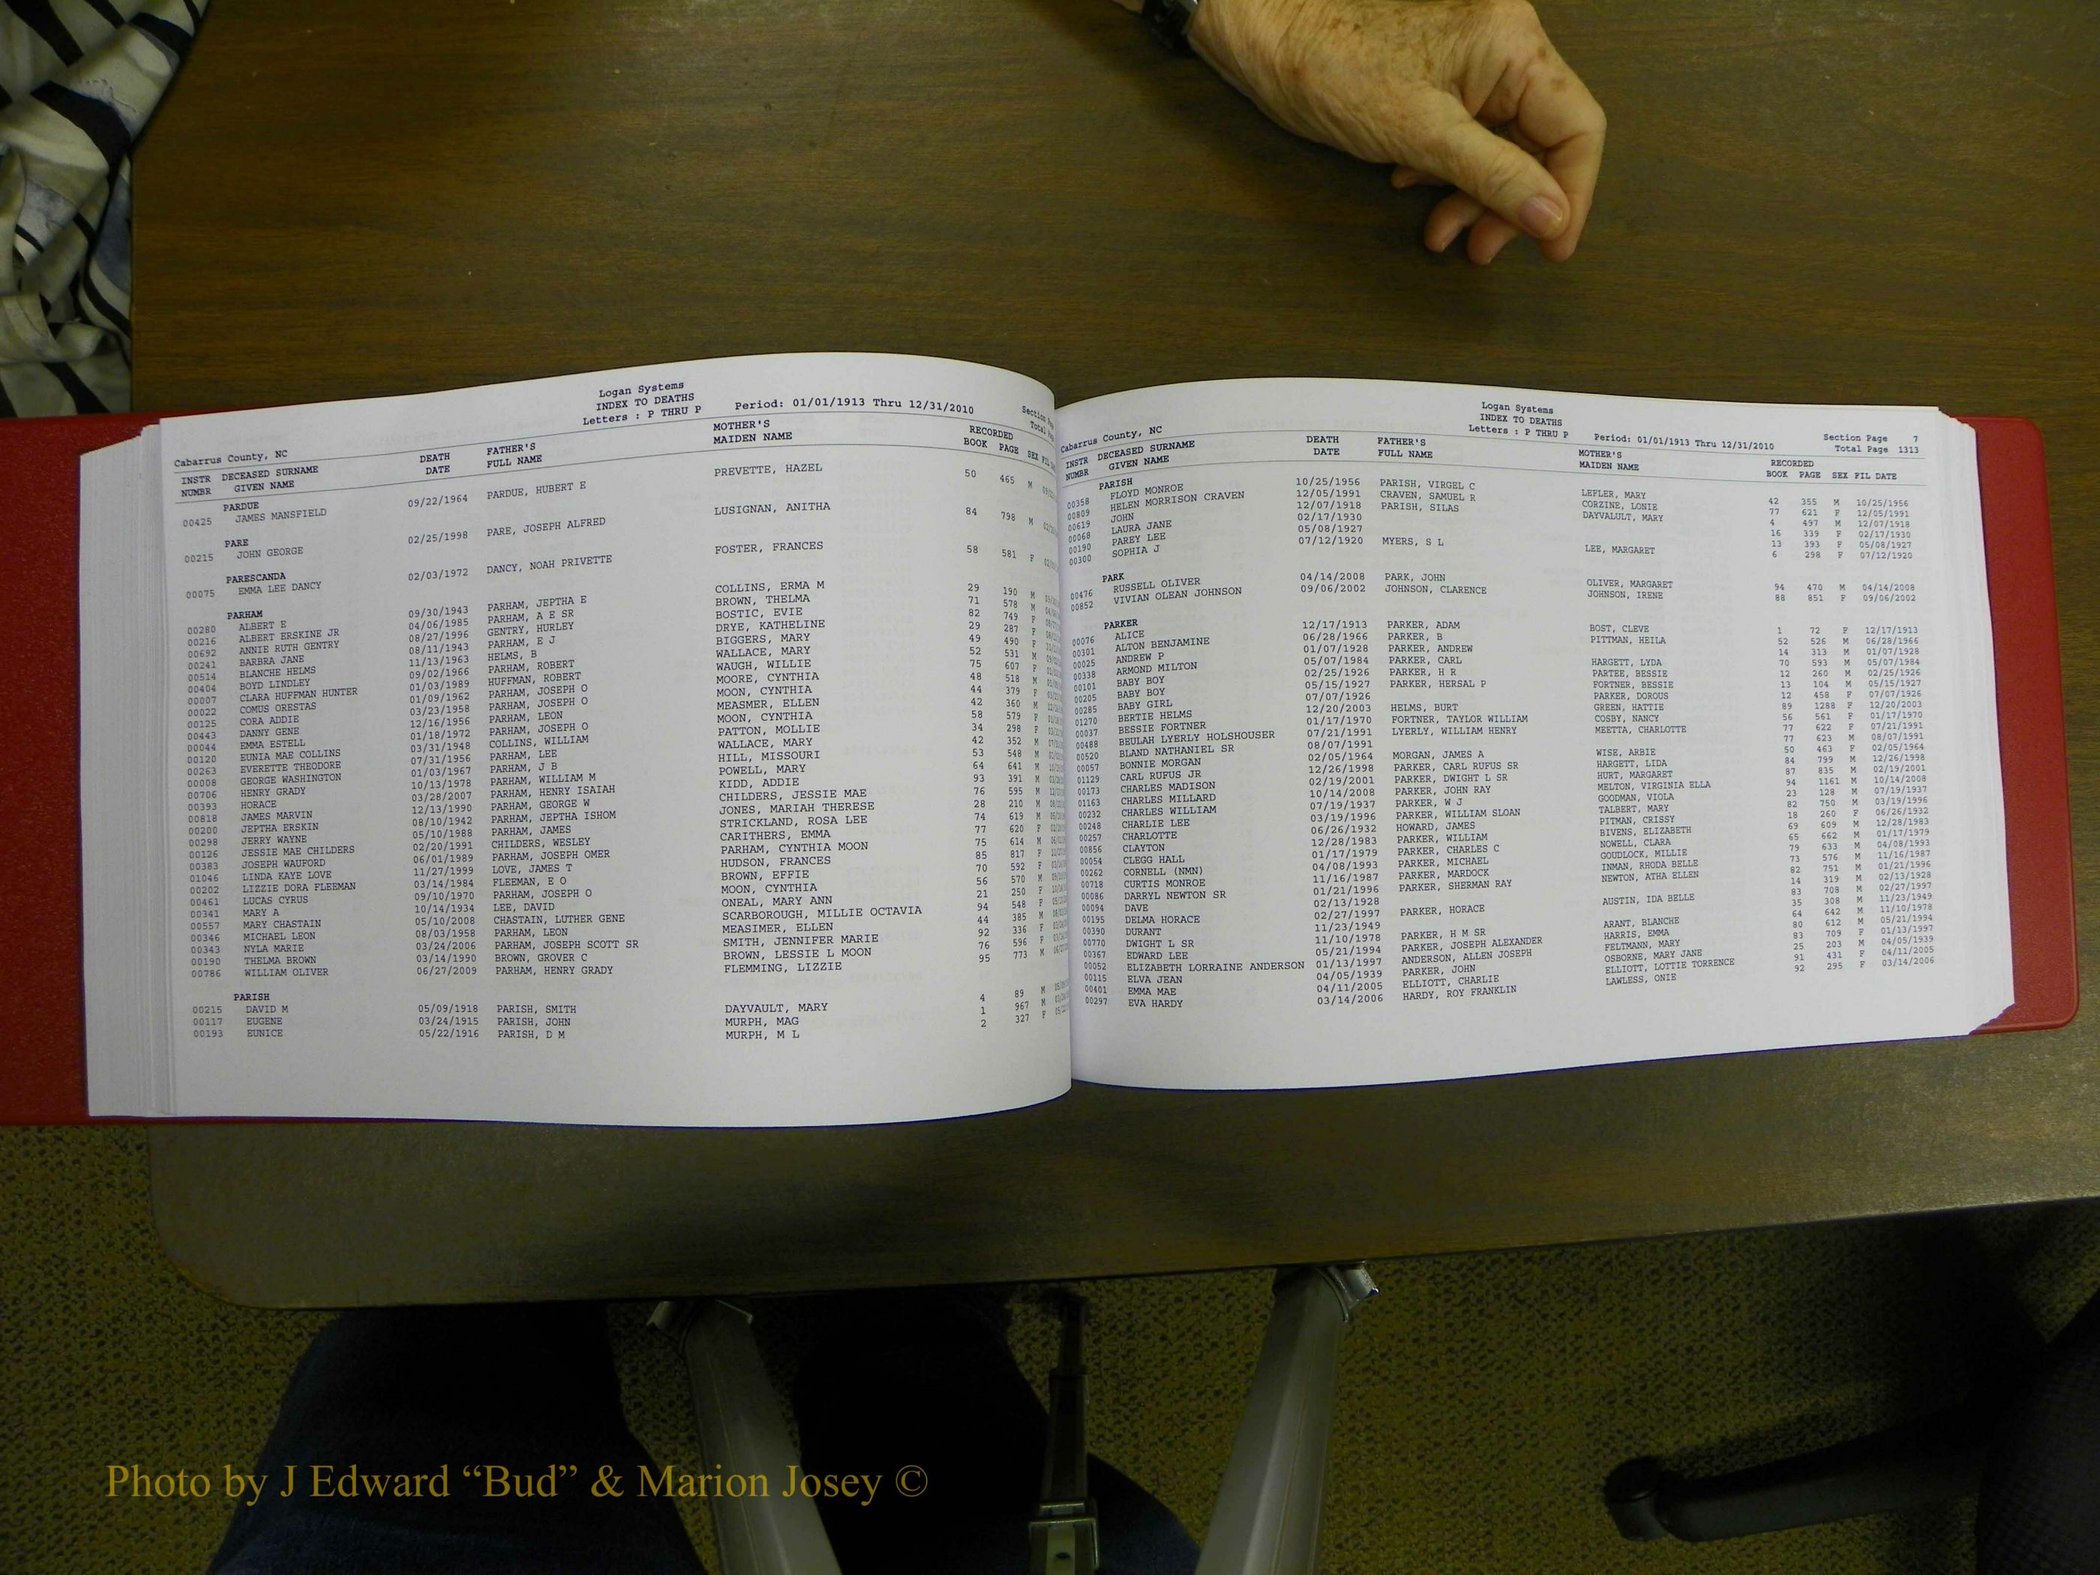 Logan Systems
INDEX TO DEATHS
Letters : P THRU P Period: 01/01/1913 Thru 12/31/2010
Cabarrus County, NC
INSTR DECEASED SURNAME DEATH FATHER'S MOTHER'S RECORDED
NUMBR GIVEN NAME DATE FULL NAME MAIDEN NAME BOOK PAGE SEX
PARDUE
00425 JAMES MANSFIELD 09/22/1964 PARDUE, HUBERT E PREVETTE, HAZEL 50 465 M
PARE
00215 JOHN GEORGE 02/25/1998 PARE, JOSEPH ALFRED LUSIGNAN, ANITHA 84 798 M
PARESCANDA
00075 EMMA LEE DANCY 02/03/1972 DANCY, NOAH PRIVETTE FOSTER, FRANCES 58 581 F
PARHAM
00280 ALBERT E 09/30/1943 PARHAM, JEPTHA E COLLINS, ERMA M 29 190 M
00216 ALBERT ERSKINE JR 04/06/1985 PARHAM, A E SR BROWN, THELMA 71 578 M
00692 ANNIE RUTH GENTRY 08/27/1996 GENTRY, HURLEY BOSTIC, EVIE 82 749 F
00241 BARBRA JANE 08/11/1943 PARHAM, E J DRYE, KATHELINE 29 287 F
00514 BLANCHE HELMS 11/13/1963 HELMS, B BIGGERS, MARY 49 490 F
00404 BOYD LINDLEY 09/02/1966 PARHAM, ROBERT WALLACE, MARY 52 531 M
00007 CLARA HUFFMAN HUNTER 01/03/1989 HUFFMAN, ROBERT WAUGH, WILLIE 75 607 F
00022 COMUS ORESTAS 01/09/1962 PARHAM, JOSEPH O MOORE, CYNTHIA 48 518 M
00125 CORA ADDIE 03/23/1958 PARHAM, JOSEPH O MOON, CYNTHIA 44 379 F
00443 DANNY GENE 12/16/1956 PARHAM, LEON MEASMER, ELLEN 42 360 M
00044 EMMA ESTELL 01/18/1972 PARHAM, JOSEPH O MOON, CYNTHIA 58 579 F
00120 EUNIA MAE COLLINS 03/31/1948 COLLINS, WILLIAM PATTON, MOLLIE 34 298 F
00263 EVERETTE THEODORE 07/31/1956 PARHAM, LEE WALLACE, MARY 42 352 M
00008 GEORGE WASHINGTON 01/03/1967 PARHAM, J B HILL, MISSOURI 53 548 M
00706 HENRY GRADY 10/13/1978 PARHAM, WILLIAM M POWELL, MARY 64 641 M
00393 HORACE 03/28/2007 PARHAM, HENRY ISAIAH KIDD, ADDIE 93 391 M
00818 JAMES MARVIN 12/13/1990 PARHAM, GEORGE W CHILDERS, JESSIE MAE 76 595 M
00200 JEPTHA ERSKIN 08/10/1942 PARHAM, JEPTHA ISHOM JONES, MARIAH THERESE 28 210 M
00298 JERRY WAYNE 05/10/1988 PARHAM, JAMES STRICKLAND, ROSA LEE 74 619 M
00126 JESSIE MAE CHILDERS 02/20/1991 CHILDERS, WESLEY CARITHERS, EMMA 77 620 F
00383 JOSEPH WAUFORD 06/01/1989 PARHAM, JOSEPH OMER PARHAM, CYNTHIA MOON 75 614 M
01046 LINDA KAYE LOVE 11/27/1999 LOVE, JAMES T HUDSON, FRANCES 85 817 F
00202 LIZZIE DORA FLEEMAN 03/14/1984 FLEEMAN, E O BROWN, EFFIE 70 592 F
00461 LUCAS CYRUS 09/10/1970 PARHAM, JOSEPH O MOON, CYNTHIA 56 570 M
00341 MARY A 10/14/1934 LEE, DAVID ONEAL, MARY ANN 21 250 F
00557 MARY CHASTAIN 05/10/2008 CHASTAIN, LUTHER GENE SCARBOROUGH, MILLIE OCTAVIA 94 548 F
00346 MICHAEL LEON 08/03/1958 PARHAM, LEON MEASIMER, ELLEN 44 385 M
00343 NYLA MARIE 03/24/2006 PARHAM, JOSEPH SCOTT SR SMITH, JENNIFER MARIE 92 336 F
00190 THELMA BROWN 03/14/1990 BROWN, GROVER C BROWN, LESSIE L MOON 76 596 F
00786 WILLIAM OLIVER 06/27/2009 PARHAM, HENRY GRADY FLEMMING, LIZZIE 95 773 M
PARISH
00215 DAVID M 05/09/1918 PARISH, SMITH DAYVAULT, MARY 4 89 M
00117 EUGENE 03/24/1915 PARISH, JOHN MURPH, MAG 1 967 M
00193 EUNICE 05/22/1916 PARISH, D M MURPH, M L 2 327 F
Logan Systems
INDEX TO DEATHS
Letters : P THRU P Period: 01/01/1913 Thru 12/31/2010
Section Page 7
Total Page 1313
Cabarrus County, NC
INSTR DECEASED SURNAME DEATH FATHER'S MOTHER'S RECORDED
NUMBR GIVEN NAME DATE FULL NAME MAIDEN NAME BOOK PAGE SEX FIL DATE
PARISH
00358 FLOYD MONROE 10/25/1956 PARISH, VIRGEL C LEFLER, MARY 42 355 M 10/25/1956
00809 HELEN MORRISON CRAVEN 12/05/1991 CRAVEN, SAMUEL R CORZINE, LONIE 77 621 F 12/05/1991
00619 JOHN 12/07/1918 PARISH, SILAS DAYVALULT, MARY 4 497 M 12/07/1918
00068 LAURA JANE 02/17/1930 16 339 F 02/17/1930
00190 PAREY LEE 05/08/1927 13 393 F 05/08/1927
00300 SOPHIA J 07/12/1920 MYERS, S L LEE, MARGARET 6 298 F 07/12/1920
PARK
00476 RUSSELL OLIVER 04/14/2008 PARK, JOHN OLIVER, MARGARET 94 470 M 04/14/2008
00852 VIVIAN OLEAN JOHNSON 09/06/2002 JOHNSON, CLARENCE JOHNSON, IRENE 88 851 F 09/06/2002
PARKER
00076 ALICE 12/17/1913 PARKER, ADAM BOST, CLEVE 1 72 F 12/17/1913
00301 ALTON BENJAMINE 06/28/1966 PARKER, B PITTMAN, HEILA 52 526 M 06/28/1966
00025 ANDREW P 01/07/1928 PARKER, ANDREW 14 313 M 01/07/1928
00338 ARMOND MILTON 05/07/1984 PARKER, CARL HARGETT, LYDA 70 593 M 05/07/1984
00101 BABY BOY 02/25/1926 PARKER, H R PARTEE, BESSIE 12 260 M 02/25/1926
00205 BABY BOY 05/15/1927 PARKER, HERSAL P FORTNER, BESSIE 13 104 M 05/15/1927
00285 BABY GIRL 07/07/1926 PARKER, DOROUS 12 458 F 07/07/1926
01270 BERTIE HELMS 12/20/2003 HELMS, BURT GREEN, HATTIE 89 1288 F 12/20/2003
00037 BESSIE FORTNER 01/17/1970 FORTNER, TAYLOR WILLIAM COSBY, NANCY 56 561 F 01/17/1970
00488 BEULAH LYERLY HOLSHOUSER 07/21/1991 LYERLY, WILLIAM HENRY MEETTA, CHARLOTTE 77 622 F 07/21/1991
00520 BLAND NATHANIEL SR 08/07/1991 77 623 M 08/07/1991
00057 BONNIE MORGAN 02/05/1964 MORGAN, JAMES A WISE, ARBIE 50 463 F 02/05/1964
01129 CARL RUFUS JR 12/26/1998 PARKER, CARL RUFUS SR HARGETT, LIDA 84 799 M 12/26/1998
00173 CHARLES MADISON 02/19/2001 PARKER, DWIGHT L SR HURT, MARGARET 87 835 M 02/19/2001
01163 CHARLES MILLARD 10/14/2008 PARKER, JOHN RAY MELTON, VIRGINIA ELLA 94 1161 M 10/14/2008
00232 CHARLES WILLIAM 07/19/1937 PARKER, W J GOODMAN, VIOLA 23 128 M 07/19/1937
00248 CHARLIE LEE 03/19/1996 PARKER, WILLIAM SLOAN TALBERT, MARY 82 750 M 03/19/1996
00257 CHARLOTTE 06/26/1932 HOWARD, JAMES PITMAN, CRISSY 18 260 F 06/26/1932
00856 CLAYTON 12/28/1983 PARKER, WILLIAM BIVENS, ELIZABETH 69 609 M 12/28/1983
00054 CLEGG HALL 01/17/1979 PARKER, CHARLES C NOWELL, CLARA 65 662 M 01/17/1979
00262 CORNELL (NMN) 04/08/1993 PARKER, MICHAEL GOUDLOCK, MILLIE 79 633 M 04/08/1993
00718 CURTIS MONROE 11/16/1987 PARKER, MARDOCK INMAN, RHODA BELLE 73 576 M 11/16/1987
00086 DARRYL NEWTON SR 01/21/1996 PARKER, SHERMAN RAY NEWTON, ATHA ELLEN 82 751 M 01/21/1996
00094 DAVE 02/13/1928 14 319 M 02/13/1928
00195 DELMA HORACE 02/27/1997 PARKER, HORACE AUSTIN, IDA BELLE 83 708 M 02/27/1997
00390 DURANT 11/23/1949 35 308 M 11/23/1949
00770 DWIGHT L SR 11/10/1978 PARKER, H M SR ARANT, BLANCHE 64 642 M 11/10/1978
00367 EDWARD LEE 05/21/1994 PARKER, JOSEPH ALEXANDER HARRIS, EMMA 80 612 M 05/21/1994
00052 ELIZABETH LORRAINE ANDERSON 01/13/1997 ANDERSON, ALLEN JOSEPH FELTMANN, MARY 83 709 F 01/13/1997
00115 ELVA JEAN 04/05/1939 PARKER, JOHN OSBORNE, MARY JANE 25 203 M 04/05/1939
00401 EMMA MAE 04/11/2005 ELLIOTT, CHARLIE ELLIOTT, LOTTIE TORRENCE 91 431 F 04/11/2005
00297 EVA HARDY 03/14/2006 HARDY, ROY FRANKLIN LAWLESS, ONIE 92 295 F 03/14/2006
Photo by J Edward “Bud” & Marion Josey ©